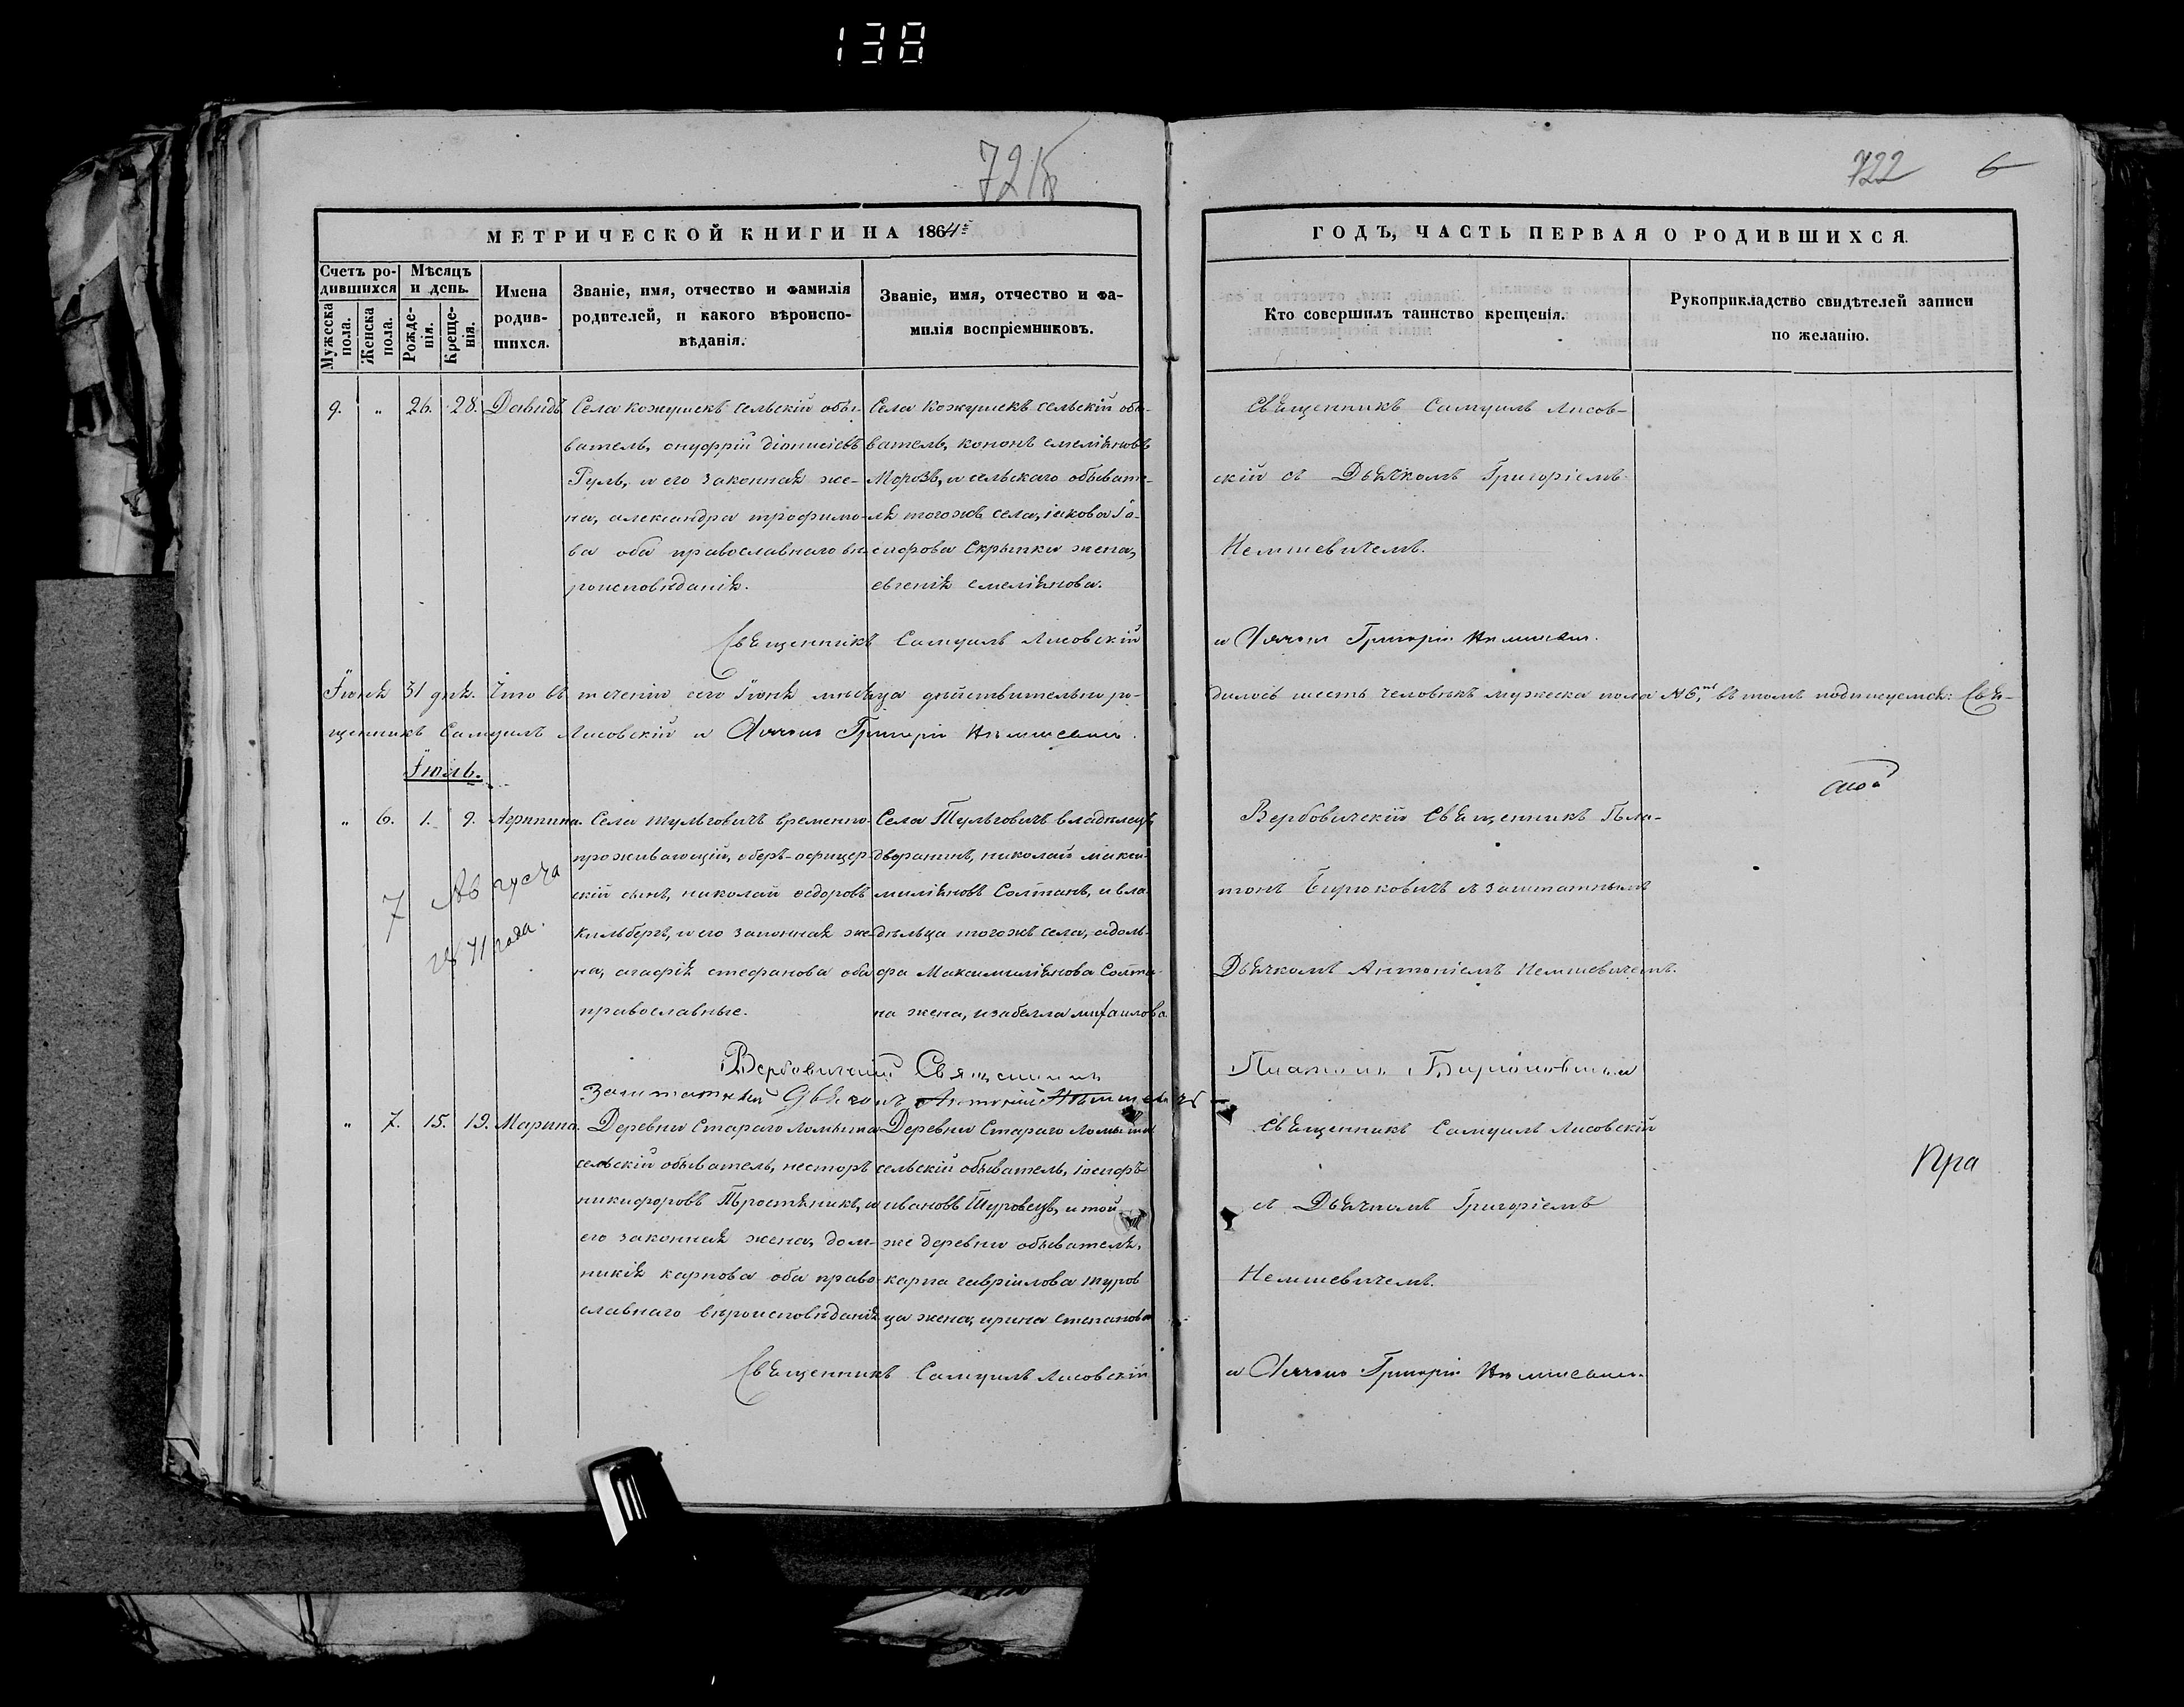 138
721
722 6
МЕТРИЧЕСКОЙ КНИГИ НА 1864
ГОДЪ, ЧАСТЬ ПЕРВАЯ О РОДИВШИХСЯ.
Счетъ ро-
дившихся
Мужеска пола.
Женска пола.
Мѣсяцъ
и день.
Рожде-
нія.
Креще-
нія.
Имена
родив-
шихся.
Званіе, имя, отчество и фамилія
родителей, и какого вѣроиспо-
вѣданія.
Званіе, имя, отчество и фа-
милія воспріемниковъ.
Кто совершилъ таинство крещенія.
Рукоприкладство свидѣтелей записи
по желанію.
9. " 26. 28. Давидъ
Села кожушекъ сельскій обы-
ватель, онуфрій діонисіевъ
Гуль, и его законная же-
на, александра трофимо-
ва оба православнаго вѣ-
роисповѣданія.
Села Кожушекъ сельскій обы-
ватель, кононъ емеляновъ
Морозъ, и сельскаго обывате-
ля тогожъ села, іакова Іо-
сифова Скрыпки жена,
евгенія емелянова.
Священникъ Самуилъ Лисов-
скій съ Дьячкомъ Григоріемъ
Немшевичемъ.
Священникъ Самуилъ Лисовскій
и Дячокъ Григорій
Іюня 31 дня. Что въ теченіи сего Іюня мѣсяца дѣйствительно ро-
дилось шесть человѣкъ мужеска пола №6, въ томъ подпишемся: Свя-
щенникъ Самуилъ Лисовскій и Дячокъ Григорій
Іюль.
" 6. 1. 9. Агрипина.
7 Августа
1871 года.
Села тульговичъ временно-
проживающій, оберъ-офицер-
скій сынъ, николай ѳедоровъ
Кильбергъ, и его законная же-
на, агафія стефанова оба
православные.
Села Тульговичъ владѣлецъ
дворянинъ, николай макси-
миліяновъ Солтанъ, и вла-
дѣльца тогожъ села, адоль-
фа Максимиліянова Солта-
на жена, изабелла михаилова.
Вербовичскій Священникъ Пла-
тонъ Бирюковичъ съ заштатнымъ
Дьячкомъ Антоніемъ Немшевичемъ.
Вербовичскій Священникъ
Платонъ Бирюковичъ и
Заштатный Дьячокъ Антоній
" 7. 15. 19. Марина.
Деревни Стараго Ломыша
сельскій обыватель, несторъ
никифоровъ Тростяникъ, и
его законная жена, дом-
никія карпова оба право-
славнаго вѣроисповѣданія
Деревни Стараго Ломыша
сельскій обыватель, іосифъ
ивановъ Туровецъ, и той
же деревни обывателя,
карпа гавріилова туров
ца жена, ирина степанова
Священникъ Самуилъ Лисовскій
съ Дьячкомъ Григоріемъ
Немшевичемъ.
Пра
Священникъ Самуилъ Лисовскій
и Дячокъ Григорій